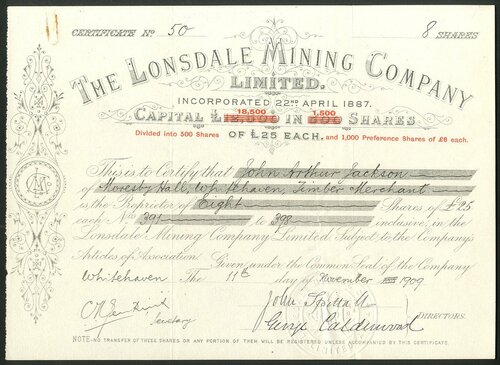 CERTIFICATE No 50 8 SHARES
THE LONSDALE MINING COMPANY
LIMITED.
INCORPORATED 22ND APRIL 1887.
18,500 1,500
CAPITAL £12,500 IN 500 SHARES
Divided into 500 Shares OF £25 EACH. and 1,000 Preference Shares of £6 each.
This is to Certify that John Arthur Jackson
of Moresby Hall, Whitehaven, Timber Merchant
is the Proprietor of Eight Shares of £25
each Nos 391 to 398 inclusive, in the
Lonsdale Mining Company Limited. Subject to the Company's
Articles of Association. Given under the Common Seal of the Company
Whitehaven The 11th day of November 1909
John
Secretary George Calderwood DIRECTORS.
NOTE—NO TRANSFER OF THESE SHARES OR ANY PORTION OF THEM WILL BE REGISTERED UNLESS ACCOMPANIED BY THIS CERTIFICATE.